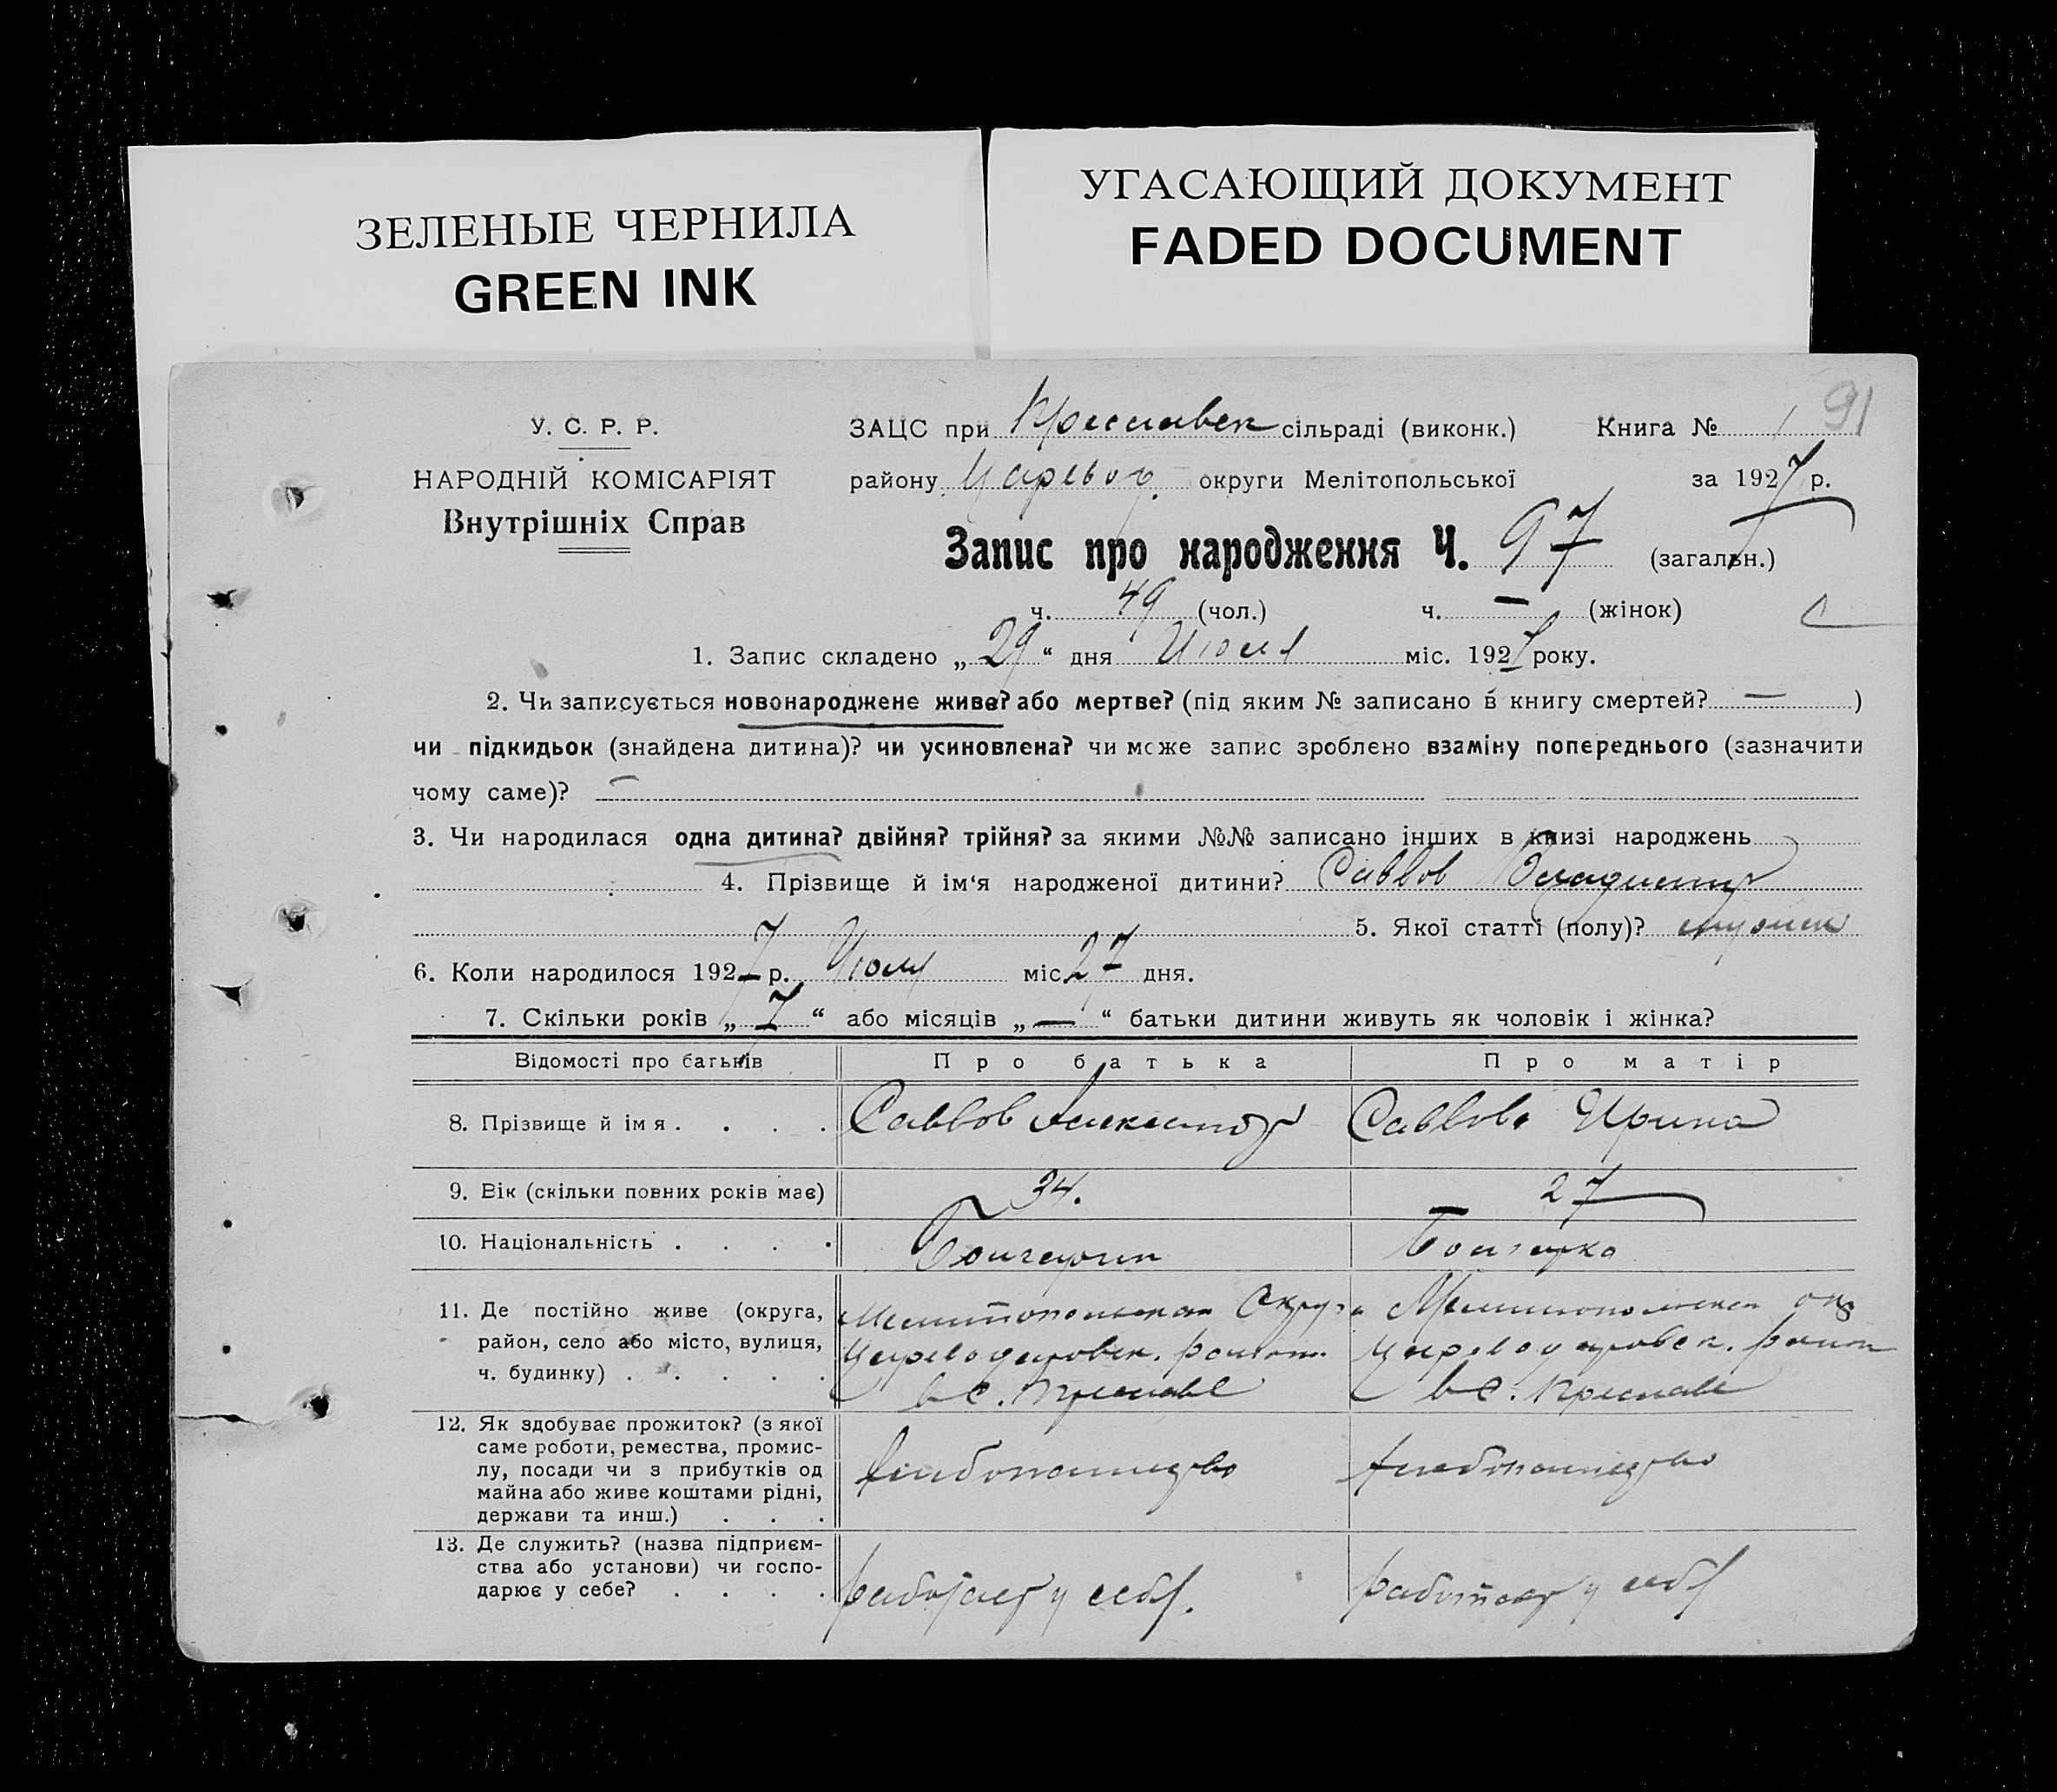 ЗЕЛЕНЫЕ ЧЕРНИЛА
GREEN INK
УГАСАЮЩИЙ ДОКУМЕНТ
FADED DOCUMENT
91
У. С. Р. Р.
НАРОДНІЙ КОМІСАРІЯТ
Внутрішніх Справ
ЗАЦС при Преславск сільраді (виконк.) Книга № 1
району Царевод. округи Мелітопольської за 1927 р.
Запис про народження Ч. 97 (загальн.)
ч. 49 (чол.) ч. — (жінок)
1. Запис складено „ 29 “ дня Июля міс. 1927 року.
2. Чи записується новонароджене живе? або мертве? (під яким № записано в книгу смертей? — )
чи підкидьок (знайдена дитина)? чи усиновлена? чи може запис зроблено взаміну попереднього (зазначити
чому саме)? —
3. Чи народилася одна дитина? двійня? трійня? за якими №№ записано інших в книзі народжень
4. Прізвище й ім‘я народженої дитини? Саввов Владимир
5. Якої статті (полу)? мужск
6. Коли народилося 1927 р. Июля міс. 27 дня.
7. Скільки років „ 7 “ або місяців „ — “ батьки дитини живуть як чоловік і жінка?
Відомості про батьків Про батька Про матір
8. Прізвище й імя . . . . Саввов Александр Саввова Ирина
9. Вік (скільки повних років має) 34. 27
10. Національність . . . . Болгарин Болгарка
11. Де постійно живе (округа, Мелитопольская Округа Мелитопольская окр
район, село або місто, вулиця, Цареводаровск. район Цареводаровск. район
ч. будинку) . . . . . в с. Преславе в с. Преславе
12. Як здобуває прожиток? (з якої
саме роботи, ремества, промис-
лу, посади чи з прибутків од хлебопашество хлебопашество
майна або живе коштами рідні,
держави та инш.) . . .
13. Де служить? (назва підприєм-
ства або установи) чи госпо-
дарює у себе? . . . . работает у себя. работает у себя